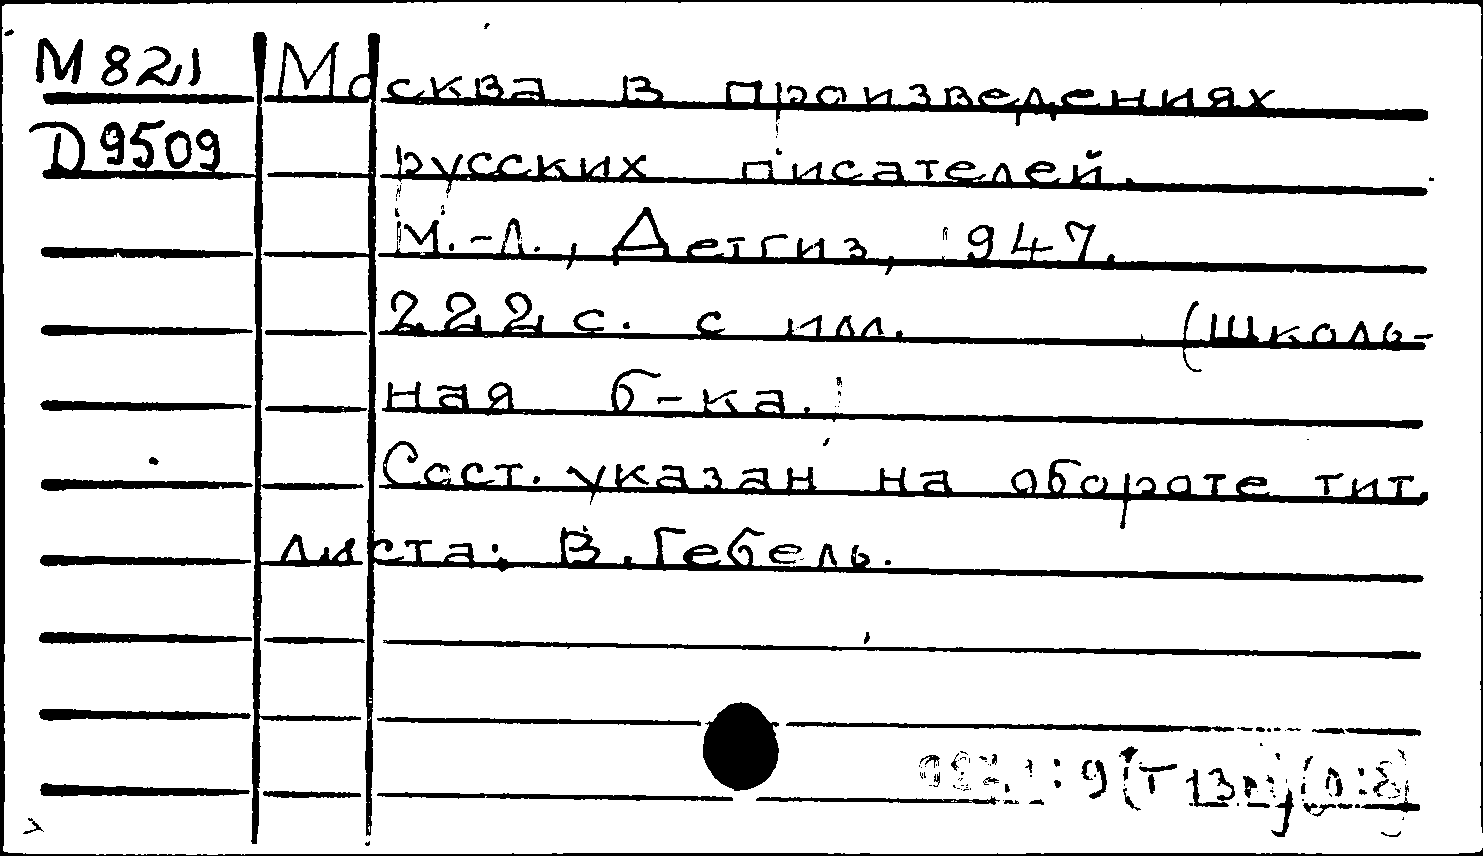 М821
D9509
Москва в произведениях
русских писателей.
М.-Л., Детгиз, 1947.
222 с. с илл. (Школь-
ная б-ка.)
Сост. указан на обороте тит.
листа: В. Гебель.